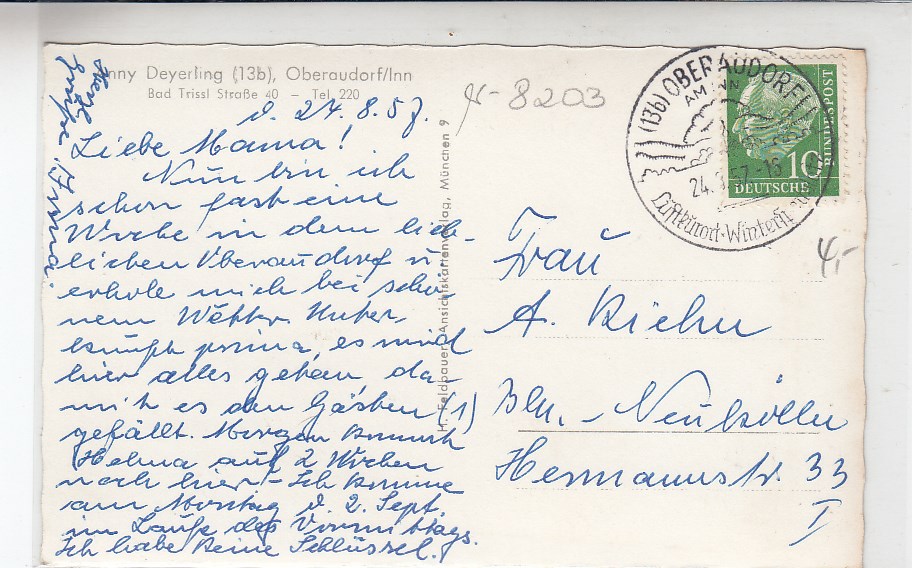 nny Deyerling (13b), Oberaudorf/Inn
Bad Trissl Straße 40 – Tel. 220
d. 24.8.57.
Liebe Mama!
Nun bin ich
schon fast eine
Woche in dem lieb-
lichen Oberaudorf u.
erhole mich bei schö-
nem Wettr. Unter-
kunft prima, es wird
hier alles getan, da-
mit es den Gästen
gefällt. Morgen kommt
Helma auf 2 Wochen
noch hier – Ich komme
am Montag d. 2. Sept.
im Laufe des Vormittags.
Ich habe keine Schlüssel.
Herzl.
Grüße
H. Feldbauer, Ansichtskartenverlag, München 9
8203
(13b) OBERAUDORF
AM INN
24. 57.-16
Luftkurort-Wintersp
10
DEUTSCHE
BUNDESPOST
4,-
Frau
A. Kiehn
(1) Bln. - Neukölln
Hermannstr. 33
I